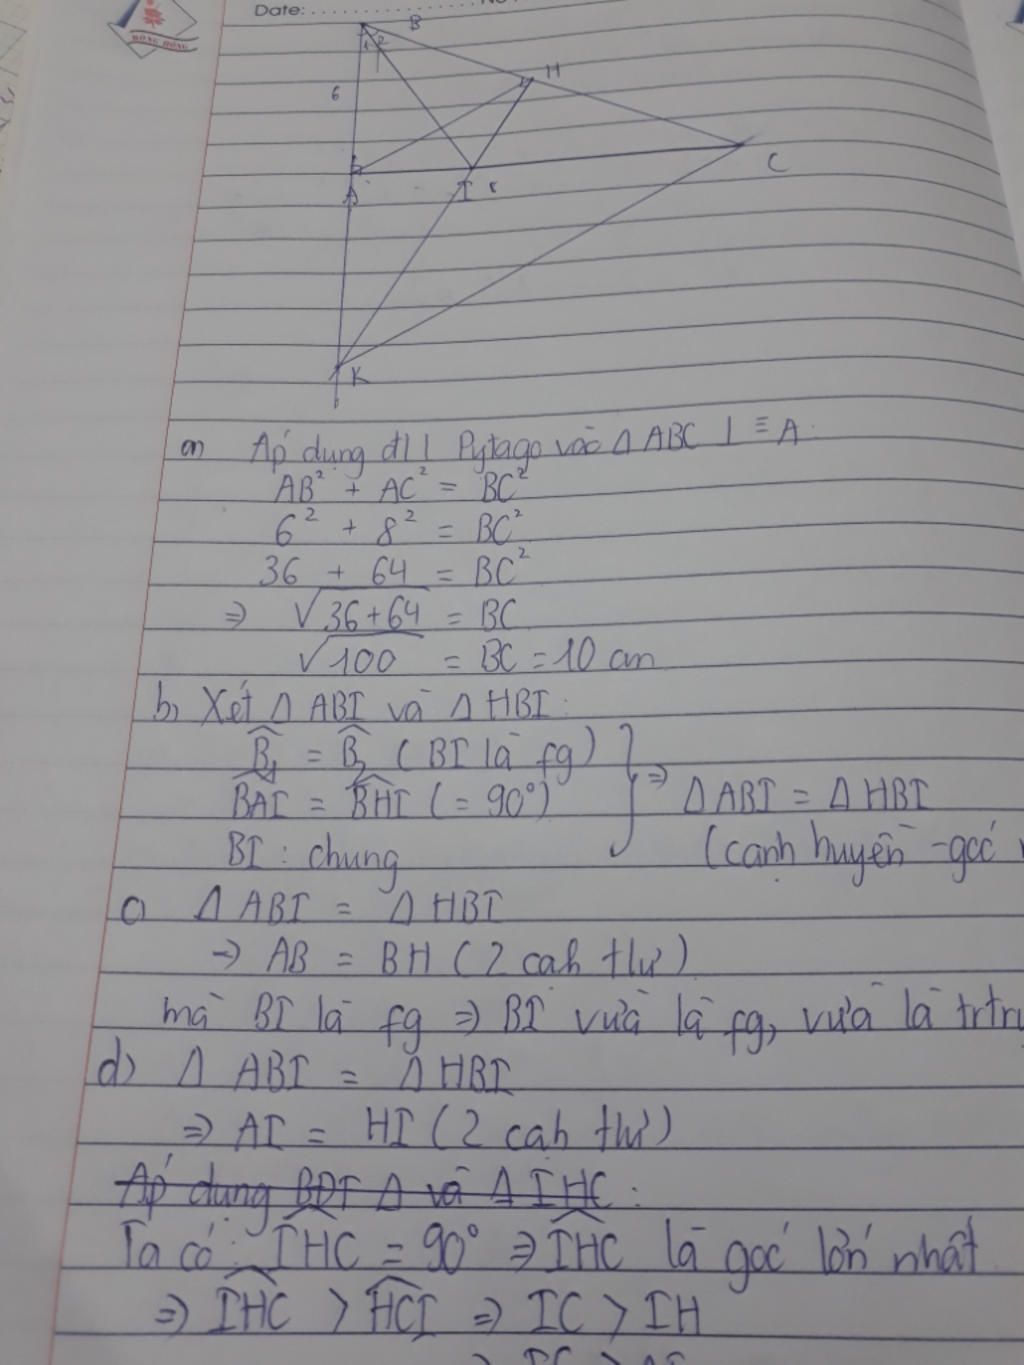 Date:
HỒNG HÔNG
B
1 2
6
H
A
I
C
K
a) Áp dụng đl1 Pytago vào Δ ABC ⊥ ≡ A:
AB² + AC² = BC²
6² + 8² = BC²
36 + 64 = BC²
⇒ √36+64 = BC
√100 = BC = 10 cm
b, Xét Δ ABI và Δ HBI:
B̂₁ = B̂₂ (BI là fg)
BAI = BHI (= 90°)
⇒ Δ ABI = Δ HBI
BI : chung
(cạnh huyền - góc
c) Δ ABI = Δ HBI
→ AB = BH (2 cah tlư)
mà BI là fg ⇒ BI vừa là fg, vừa là trtr
d) Δ ABI = Δ HBI
⇒ AI = HI (2 cah tlư)
Áp dụng BĐT Δ và Δ IHC :
Ta có: IHC = 90° ⇒ IHC là góc lớn nhất
⇒ IHC > HCI ⇒ IC > IH